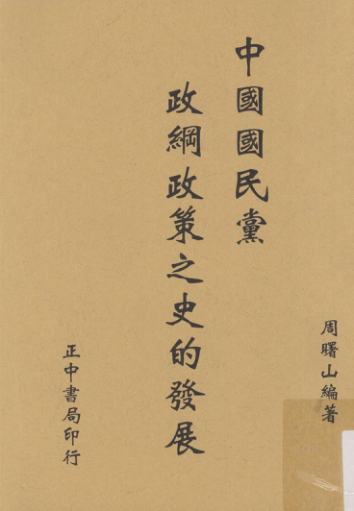 中國國民黨
政綱政策之史的發展
周曙山編著
正中書局印行